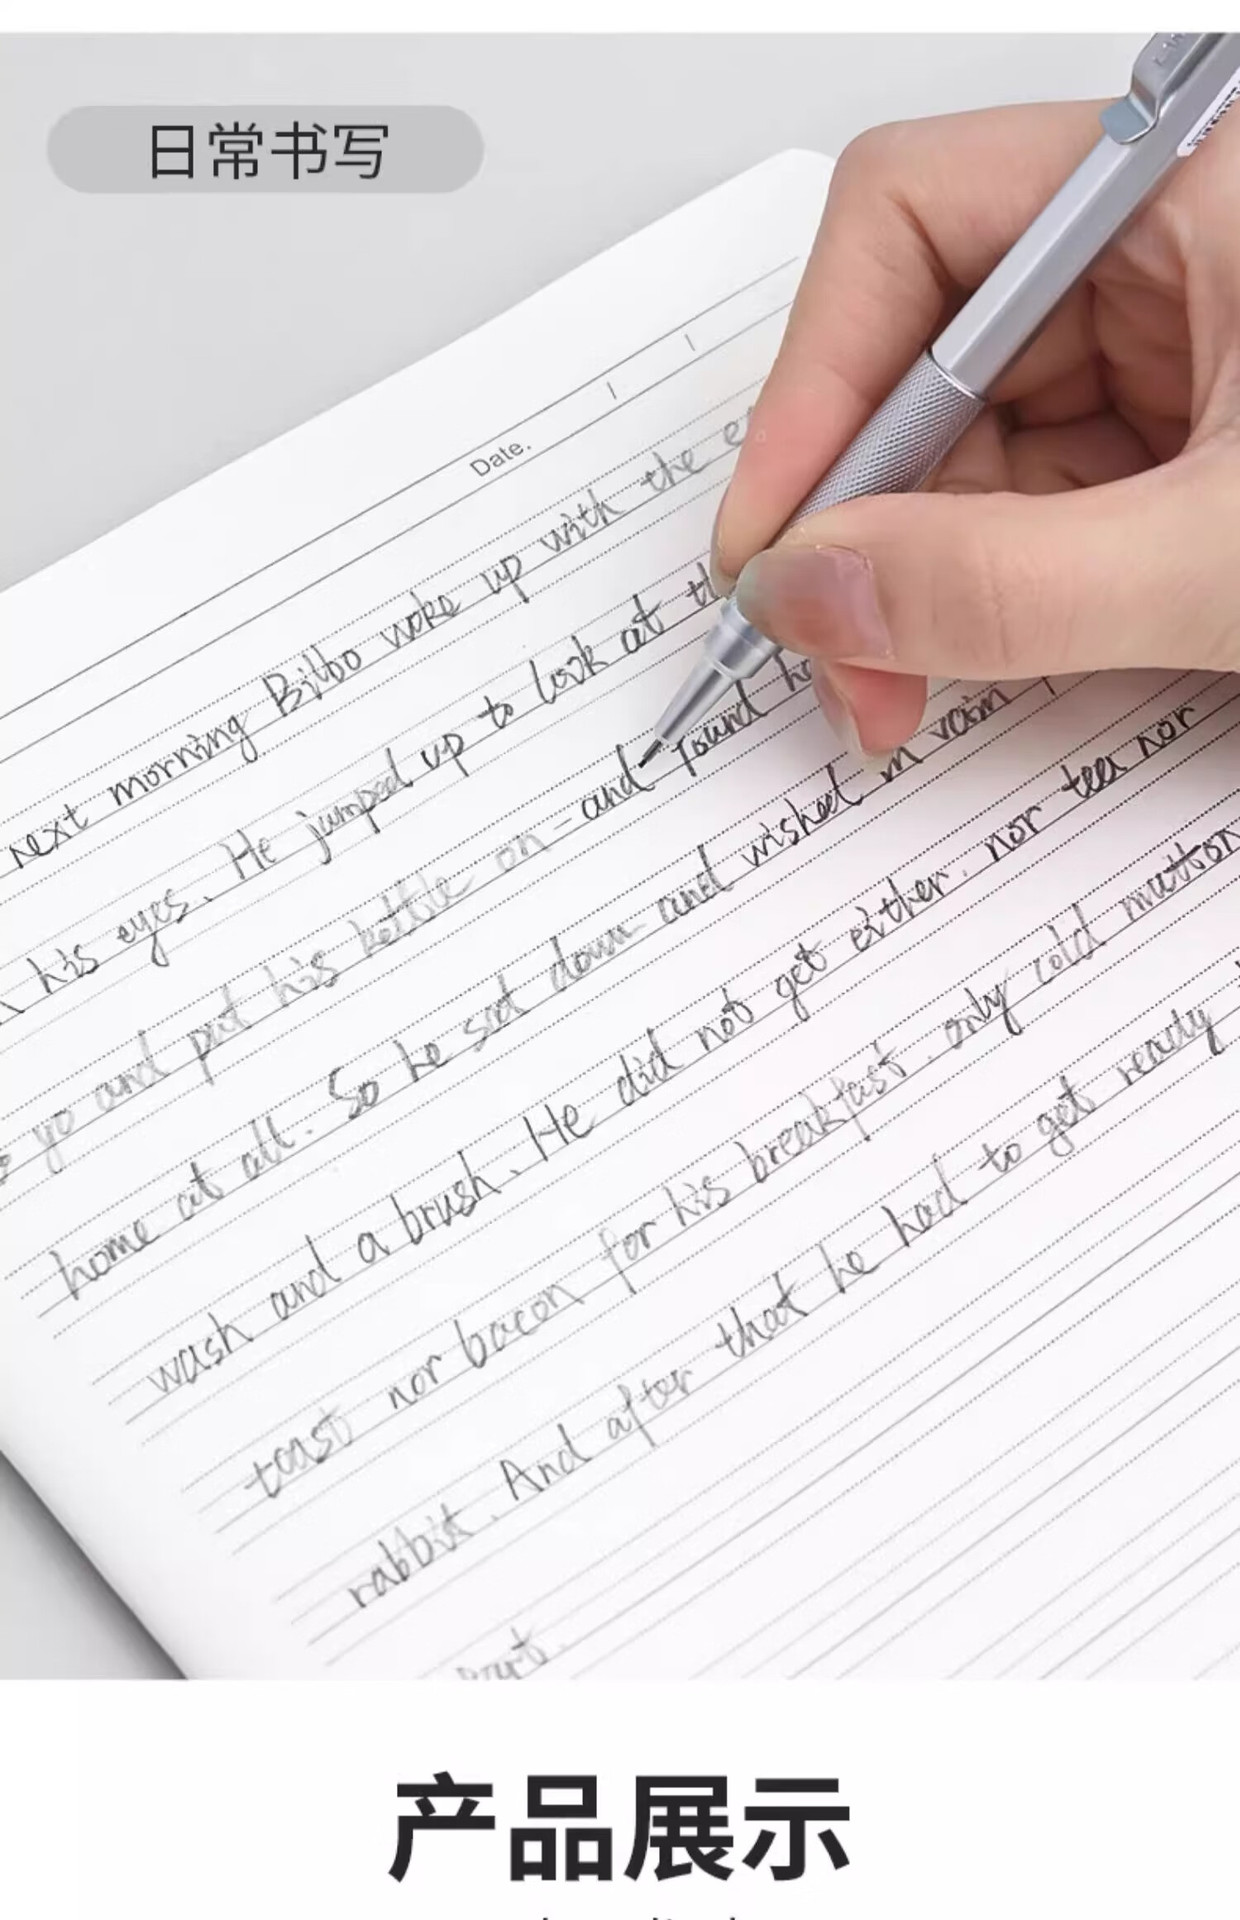 日常书写
Date. / /
next morning Bilbo woke up with the
his eyes. He jumped up to look at
go and put his kettle on - and found
home at all. So he sat down and wished in vain
wash and a brush. He did not get either. nor tea nor
toast nor bacon for his breakfast. only cold mutton
rabbit. And after that he had to get ready
产品展示